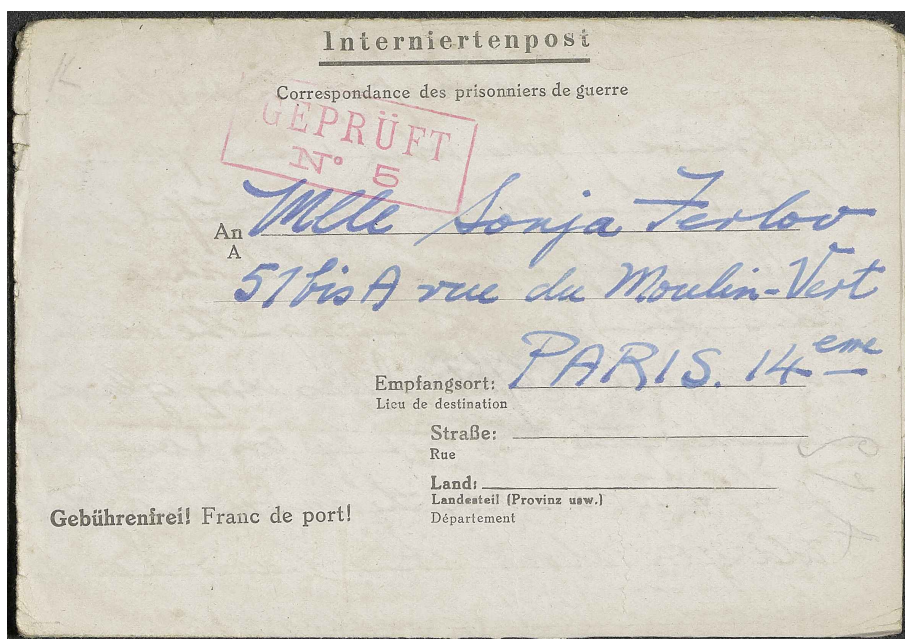 Interniertenpost
Correspondance des prisonniers de guerre
GEPRÜFT
N° 5
An Mlle Sonja Ferlov
A
51 bis A rue du Moulin-Vert
Empfangsort: PARIS. 14eme
Lieu de destination
Straße:
Rue
Land:
Landesteil (Provinz usw.)
Département
Gebührenfrei! Franc de port!